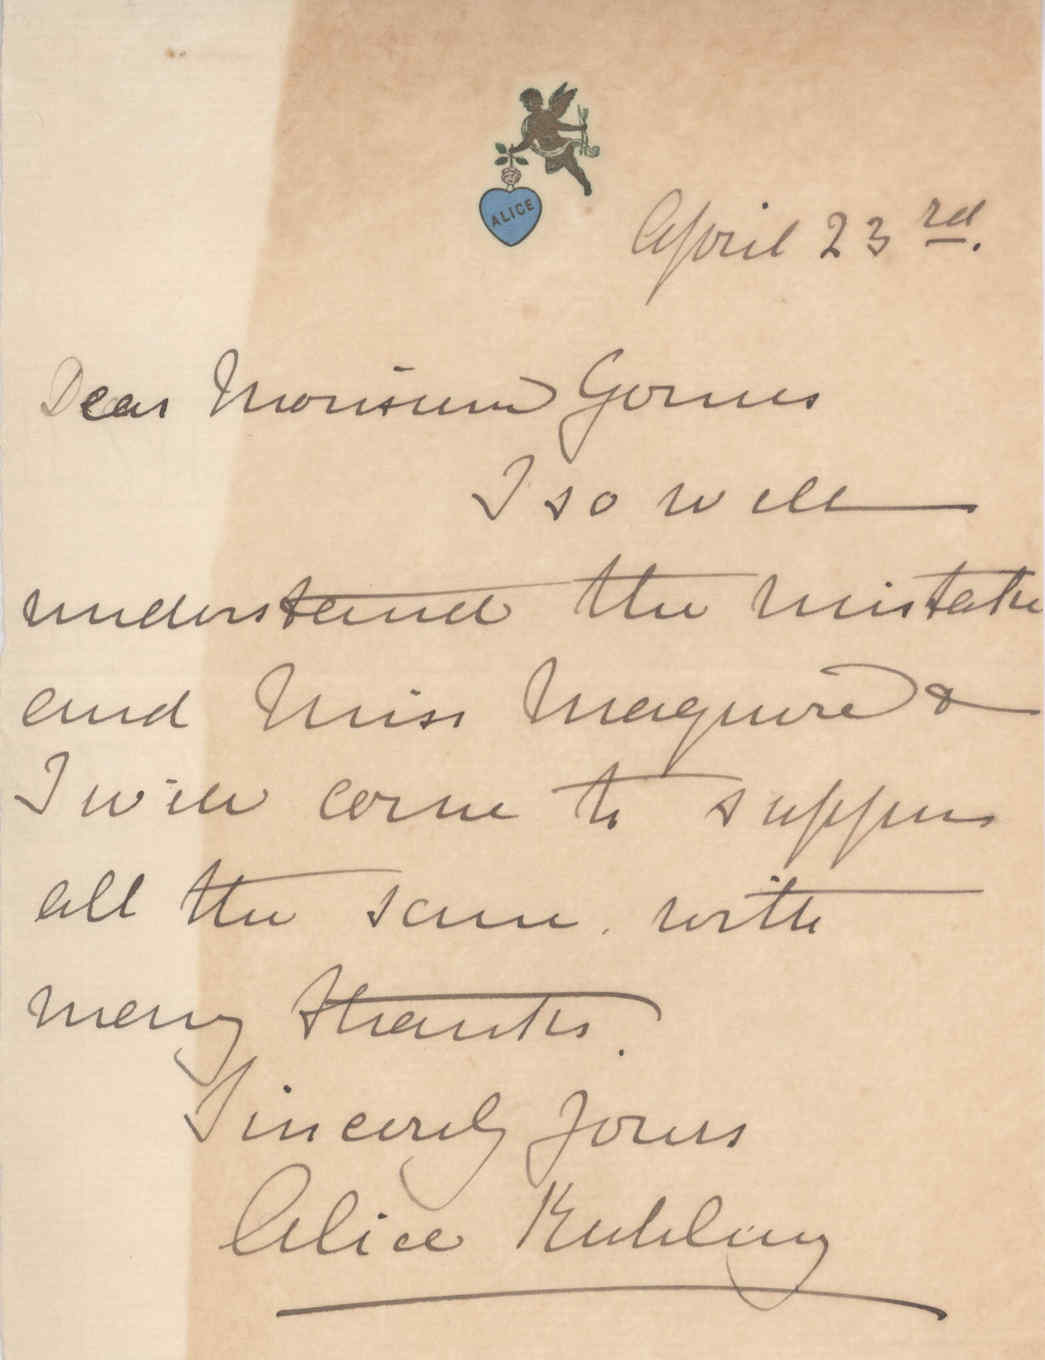 ALICE
April 23rd.
Dear
I so well
understand the mistake
and Miss Maguire &
I will come to supper
all the same. with
many thanks.
Sincerely Yours
Alice